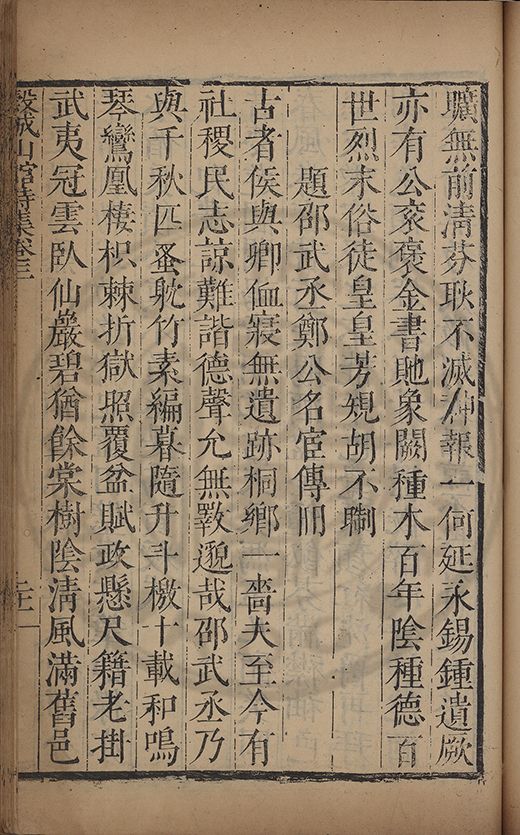 曠無前淸芬耿不滅神報一何延永錫鍾遺厥
亦有公袞褒金書貤象闕種木百年陰種德百
世烈末俗徒皇皇芳規胡不聊
題邵武丞鄭公名宦傳冊
古者侯與卿血寢無遺跡桐鄉一嗇夫至今有
社稷民志諒難諧德聲允無斁邈哉邵武丞乃
與千秋匹蚤躭竹素編暮隨升斗檄十載和鳴
琴鸞凰棲枳棘折獄照覆盆賦政懸尺籍老掛
武夷冠雲臥仙巖碧猶餘棠樹陰淸風滿舊邑
穀城山館詩集卷三